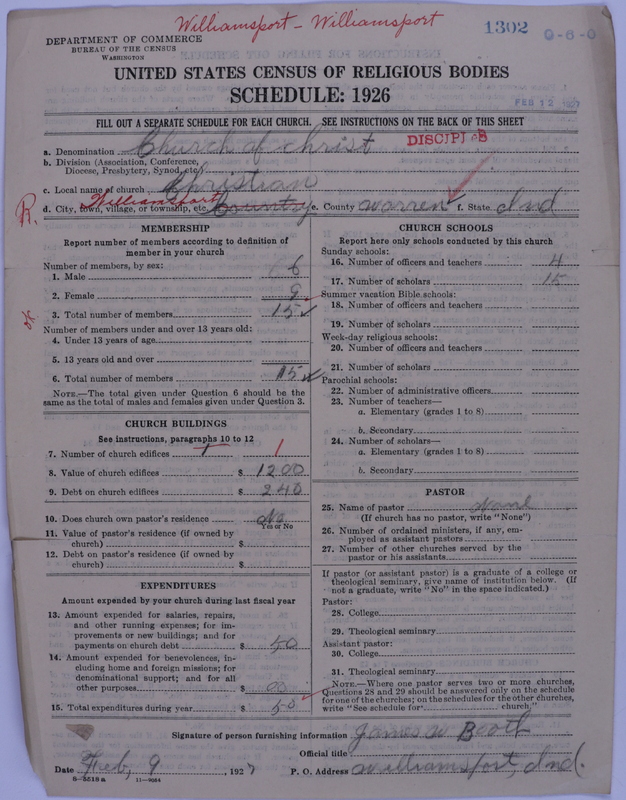 Williamsport - Williamsport
1302
DEPARTMENT OF COMMERCE
BUREAU OF THE CENSUS
WASHINGTON
UNITED STATES CENSUS OF RELIGIOUS BODIES
SCHEDULE: 1926
FEB 12 1927
FILL OUT A SEPARATE SCHEDULE FOR EACH CHURCH. SEE INSTRUCTIONS ON THE BACK OF THIS SHEET
a. Denomination Church of Christ
b. Division (Association, Conference,
Diocese, Presbytery, Synod, etc.)
c. Local name of church Christian
R. d. City, town, village, or township, etc. Williamsport Country e. County Warren f. State Ind
MEMBERSHIP
Report number of members according to definition of
member in your church
Number of members, by sex:
1. Male 6
2. Female 9
3. Total number of members 15
Number of members under and over 13 years old:
4. Under 13 years of age
5. 13 years old and over
6. Total number of members 15
NOTE.—The total given under Question 6 should be the
same as the total of males and females given under Question 3.
CHURCH BUILDINGS
See instructions, paragraphs 10 to 12
7. Number of church edifices 1 1
8. Value of church edifices $ 1200
9. Debt on church edifices $ 240
10. Does church own pastor's residence No
Yes or No
11. Value of pastor's residence (if owned by
church) $
12. Debt on pastor's residence (if owned by
church) $
EXPENDITURES
Amount expended by your church during last fiscal year
13. Amount expended for salaries, repairs,
and other running expenses; for im-
provements or new buildings; and for
payments on church debt $ 50
14. Amount expended for benevolences, in-
cluding home and foreign missions; for
denominational support; and for all
other purposes $ 00
15. Total expenditures during year $ 50
CHURCH SCHOOLS
Report here only schools conducted by this church
Sunday schools:
16. Number of officers and teachers 4
17. Number of scholars 15
Summer vacation Bible schools:
18. Number of officers and teachers
19. Number of scholars
Week-day religious schools:
20. Number of officers and teachers
21. Number of scholars
Parochial schools:
22. Number of administrative officers
23. Number of teachers—
a. Elementary (grades 1 to 8)
b. Secondary
24. Number of scholars—
a. Elementary (grades 1 to 8)
b. Secondary
PASTOR
25. Name of pastor None
(If church has no pastor, write "None")
26. Number of ordained ministers, if any, em-
ployed as assistant pastors
27. Number of other churches served by the
pastor or his assistants
If pastor (or assistant pastor) is a graduate of a college or
theological seminary, give name of institution below. (If
not a graduate, write "No" in the space indicated.)
Pastor:
28. College
29. Theological seminary
Assistant pastor:
30. College
31. Theological seminary
NOTE.—Where one pastor serves two or more churches,
Questions 28 and 29 should be answered only on the schedule
for one of the churches; on the schedules for the other churches,
write "See schedule for church."
Signature of person furnishing information James W Booth
Official title
Date Feb, 9, 1927 P. O. Address Williamsport, Ind.
8-5518a 11-9064